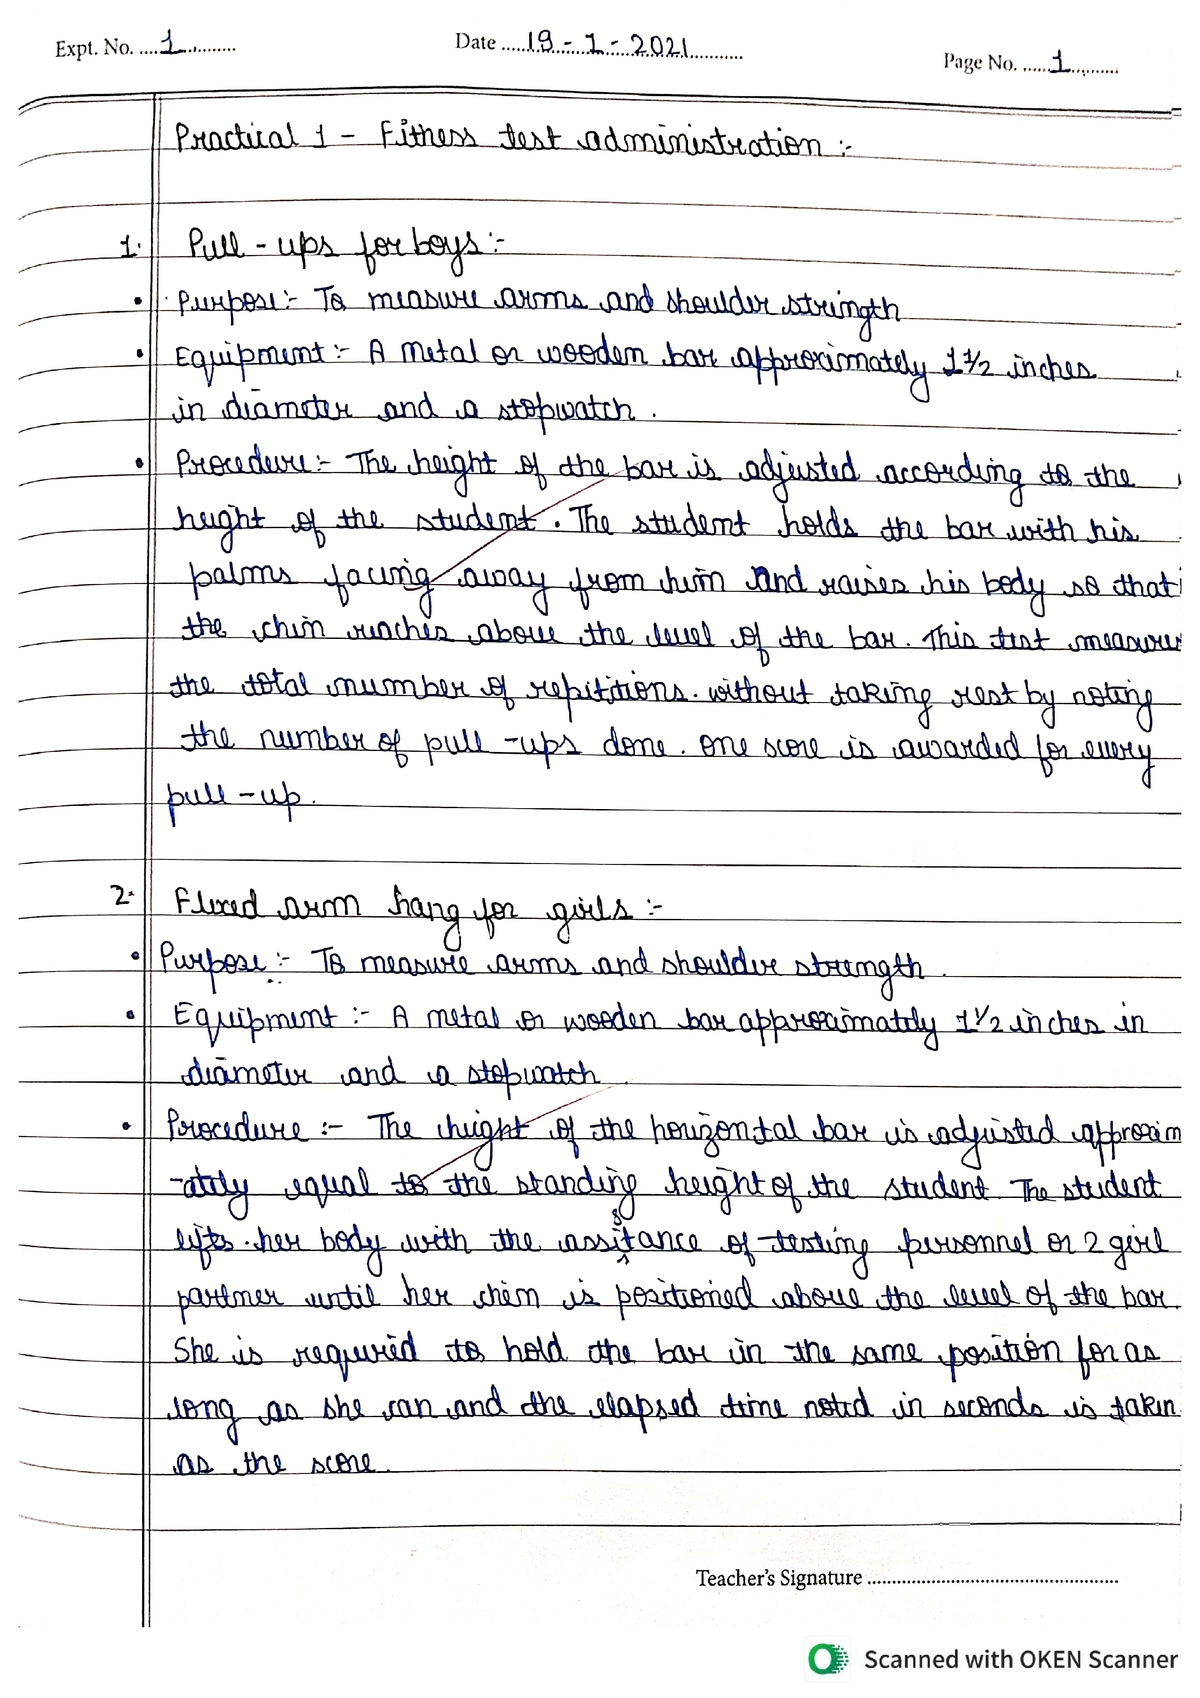 Expt. No. ....1............
Date ......19-1-2021............
Page No. ......1..........
Practical 1 - Fitness test administration :-
1. Pull-ups for boys :-
• Purpose :- To measure arms and shoulder strength
• Equipment :- A metal or wooden bar approximately 1 1/2 inches
in diameter and a stopwatch.
• Procedure :- The height of the bar is adjusted according to the
height of the student. The student holds the bar with his
palms facing away from him and raises his body so that
the chin reaches above the level of the bar. This test measures
the total number of repititions. without taking rest by noting
the number of pull-ups done. one score is awarded for every
pull-up.
2. Flexed arm hang for girls :-
• Purpose :- To measure arms and shoulder strength.
• Equipment :- A metal or wooden bar approximately 1 1/2 inches in
diameter and a stopwatch
• Procedure :- The height of the horizontal bar is adjusted approxim
-ately equal to the standing height of the student. The student
lifts her body with the assistance of testing personnel or 2 girl
partner until her chin is positioned above the level of the bar.
She is required to hold the bar in the same position for as
long as she can and the elapsed time noted in seconds is taken
as the score.
Teacher's Signature ..................................................
Scanned with OKEN Scanner